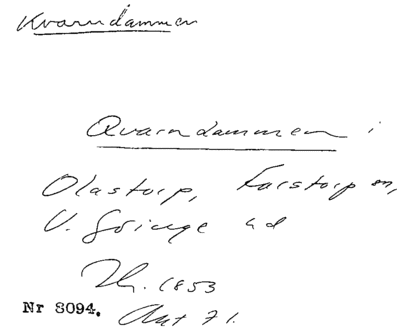 Kvarndammen
Qvarndammen i
Olastorp, Farstorp sn,
V. Göinge hd
Th. 1853
Nr 3094. Akt 71.